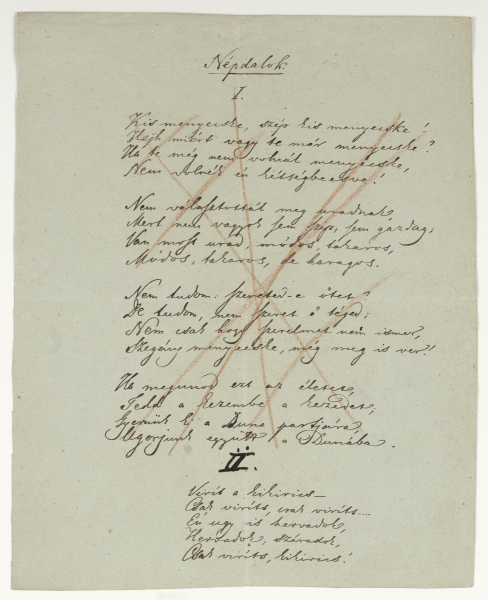 Népdalok.
I.
Kis menyecske, szép kis menyecske!
Hejh miért vagy te már menyecske?
Ha te még nem volnál menyecske,
Nem volnék én kétségbeesve!
Nem választottál meg uradnak,
Mert nem vagyok sem szép, sem gazdag;
Van most urad, módos, takaros,
Módos, takaros, de haragos.
Nem tudom: szereted-e őtet?
De tudom, nem szeret ő téged;
Nem csak hogy szerelmet nem ismer,
Szegény menyecske, még meg is ver!
Ha megunod ezt az életet,
Tedd a kezembe a kezedet,
Gyerünk ki a Duna partjaira,
Ugorjunk együtt a Dunába.
II.
Virít a kikirics—
Csak viríts, csak viríts....
Én ugy is hervadok,
Hervadok, száradok,
Csak viríts, kikirics!